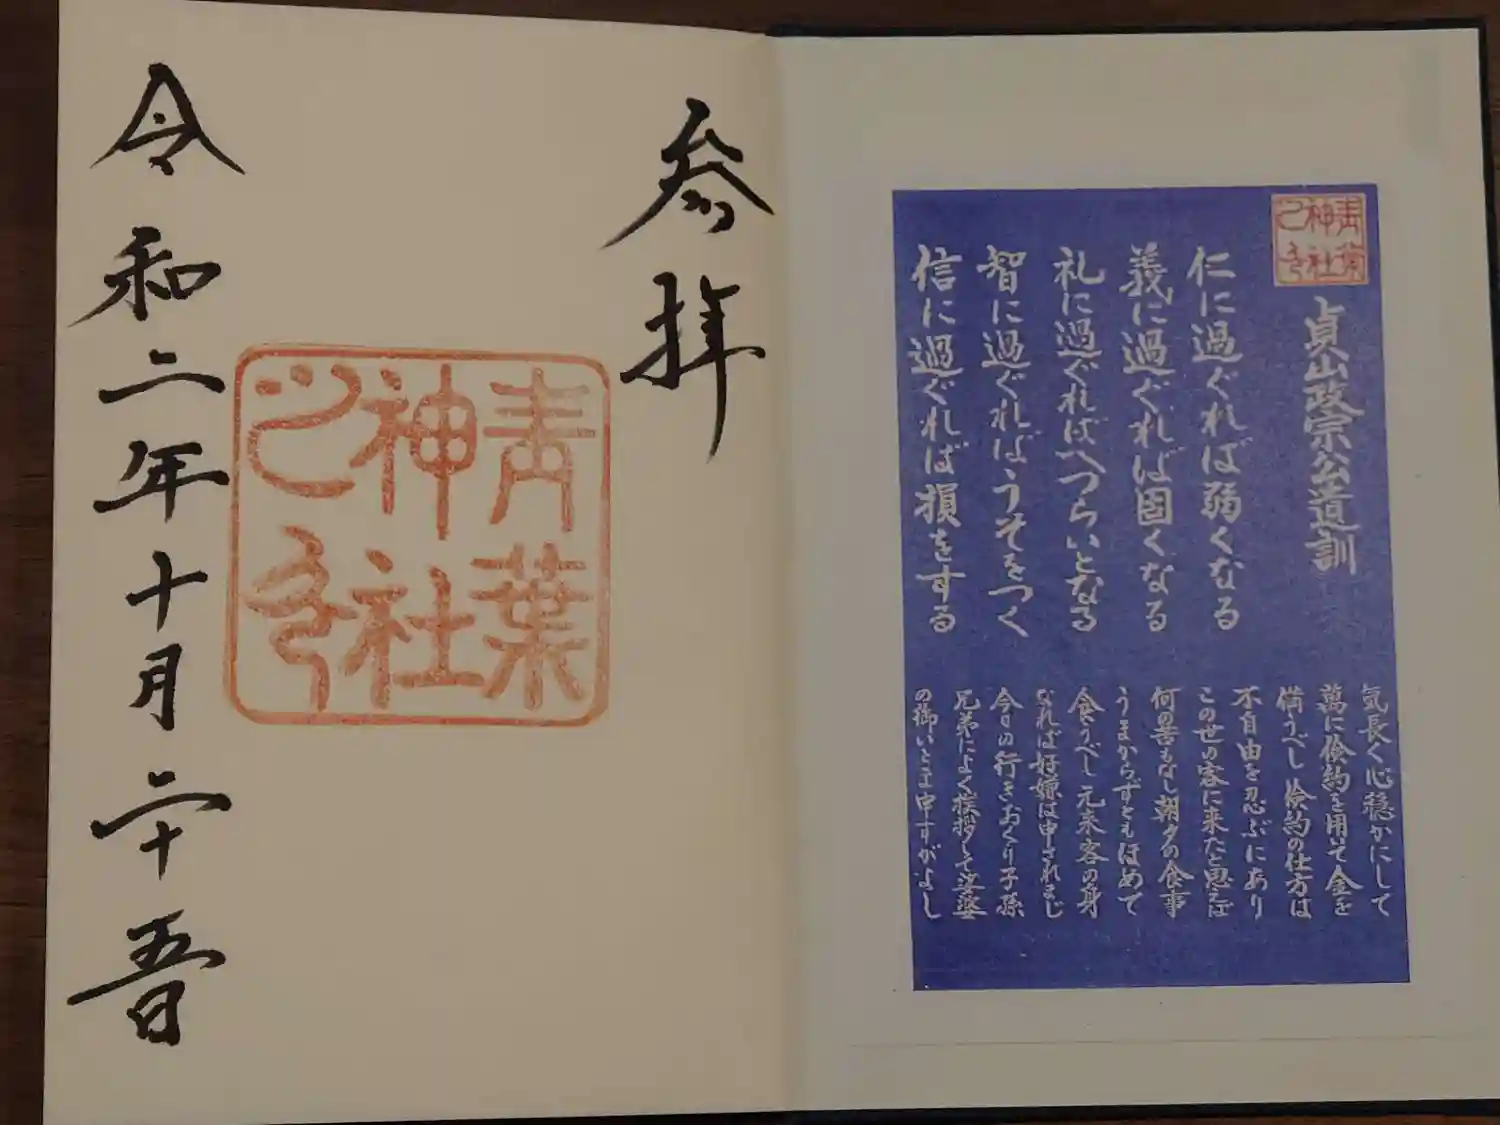 参拝
青葉
神社
之印
令和二年十月二十五日
青葉
神社
之印
貞山政宗公遺訓
仁に過ぐれば弱くなる
義に過ぐれば固くなる
礼に過ぐればへつらいとなる
智に過ぐればうそをつく
信に過ぐれば損をする
気長く心穏かにして
萬に倹約を用いて金を
備うべし倹約の仕方は
不自由を忍ぶにあり
この世の客に来たと思えば
何の苦もなし朝夕の食事
うまからずともほめて
食うべし元来客の身
なれば好嫌は申されまじ
今日の行きおくり子孫
兄弟によく挨拶して娑婆
の御いとま申すがよし